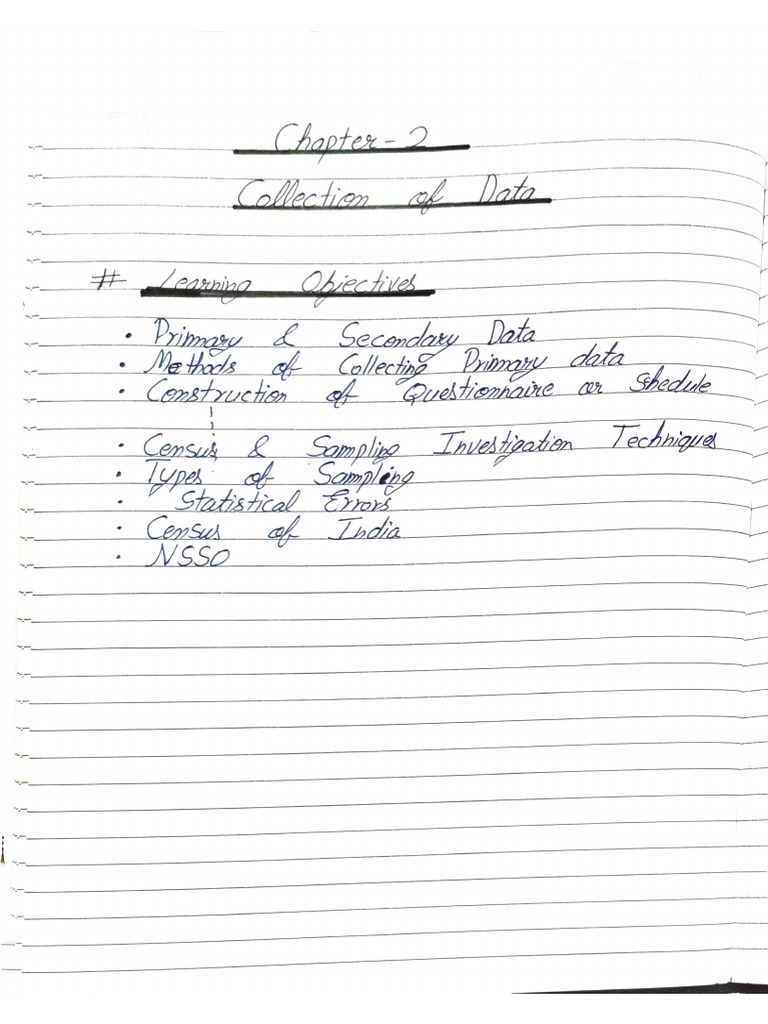 Chapter - 2
Collection of Data
# Learning Objectives
• Primary & Secondary Data
• Methods of Collecting Primary data
• Construction of Questionnaire or Shedule
• Census & Sampling Investigation Techniques
• Types of Sampling
• Statistical Errors
• Census of India
• NSSO